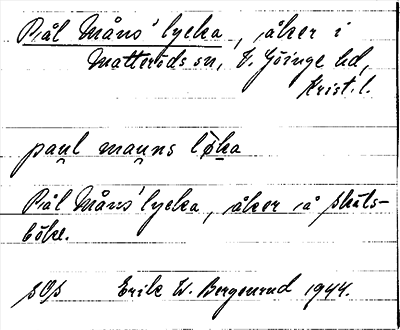 Pål Måns' lycka, åker i
Matteröds sn, V. Göinge hd,
Krist. l.
pau̯l mau̯ns løka
Pål Måns' lycka, åker å Skäts-
böke.
sOs Erik W. Bergenrud 1944.